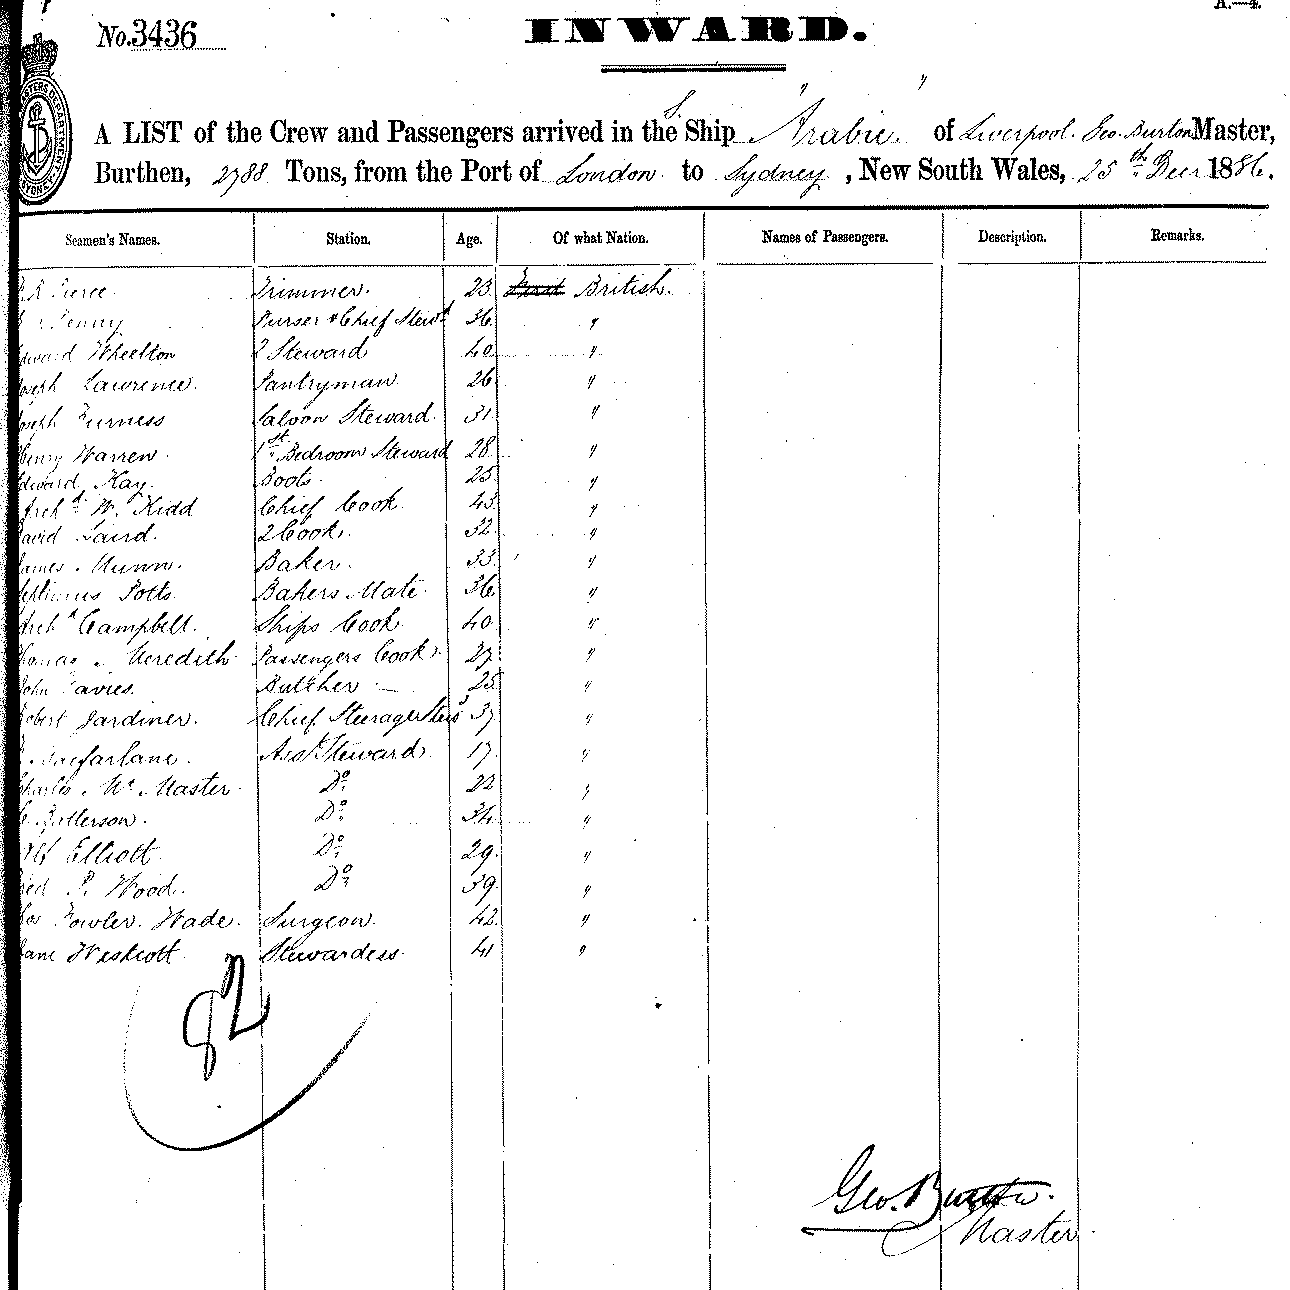 A.—4.
No. 3436
INWARD.
A LIST of the Crew and Passengers arrived in the S. Ship "Arabic" of Liverpool. Geo. Burton Master,
Burthen, 2788 Tons, from the Port of London to Sydney, New South Wales, 25th Decr 1886.
Seamen's Names. Station. Age. Of what Nation. Names of Passengers. Description. Remarks.
Pierce Trimmer. 23 British.
Penny Purser & Chief Stewd 36 "
Edward Wheelton 2 Steward 40 "
Joseph Lawrence. Pantryman. 26 "
Joseph Furness Saloon Steward 31 "
Henry Warren. 1st Bedroom Steward 28 "
Edward Kay. Boots. 25 "
Archd W. Kidd Chief Cook 43 "
David Laird. 2 Cook. 32 "
James Munn. Baker. 33 "
Septimus Potts. Bakers Mate 36 "
Archd Campbell. Ships Cook 40 "
Thomas Meredith Passengers Cook. 27 "
John Davies. Butcher — 25 "
Robert Jardiner. Chief Steerage Stewd 37 "
Macfarlane. Asst Steward 17 "
Charles Mc Master Do 22 "
Patterson. Do 34 "
Elliott Do 29 "
Fred P. Wood. Do 39 "
Fowler Wade. Surgeon. 42 "
Jane Westcott Stewardess. 41 "
82
Geo. Burton.
Master